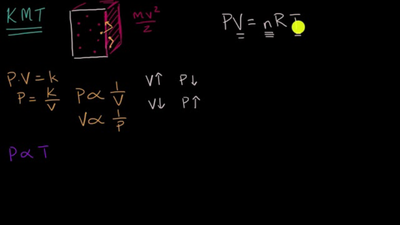 KMT
mv²/2
PV = nRT
P·V = k
P = K/V
P ∝ 1/V
V ∝ 1/P
V↑ P↓
V↓ P↑
P ∝ T